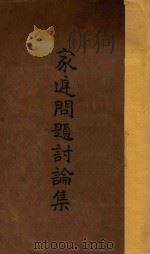 家庭問題討論集
www.mtoou.info